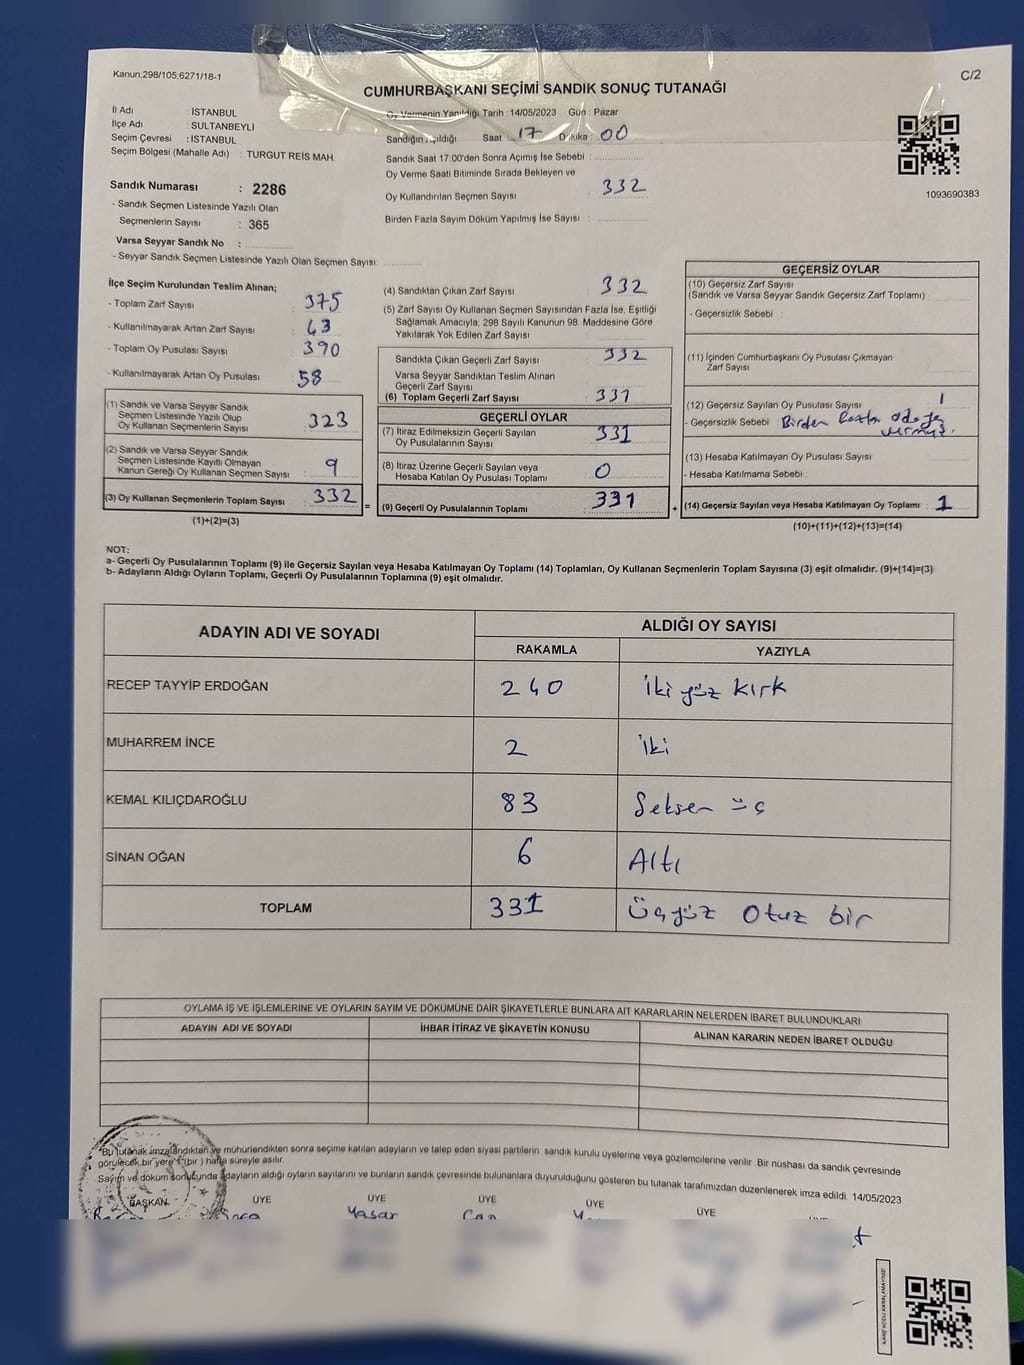 Kanun:298/105;6271/18-1
C/2
CUMHURBAŞKANI SEÇİMİ SANDIK SONUÇ TUTANAĞI
İl Adı : İSTANBUL
İlçe Adı : SULTANBEYLİ
Seçim Çevresi : İSTANBUL
Seçim Bölgesi (Mahalle Adı) : TURGUT REİS MAH.
Oy Vermenin Yapıldığı Tarih : 14/05/2023 Gün : Pazar
Sandığın Açıldığı Saat : 17 Dakika : 00
Sandık Saat 17.00'den Sonra Açımış İse Sebebi :
Oy Verme Saati Bitiminde Sırada Bekleyen ve
Oy Kullandırılan Seçmen Sayısı : 332
Birden Fazla Sayım Döküm Yapılmış İse Sayısı :
1093690383
Sandık Numarası : 2286
- Sandık Seçmen Listesinde Yazılı Olan
Seçmenlerin Sayısı : 365
Varsa Seyyar Sandık No :
- Seyyar Sandık Seçmen Listesinde Yazılı Olan Seçmen Sayısı:
İlçe Seçim Kurulundan Teslim Alınan;
- Toplam Zarf Sayısı : 375
- Kullanılmayarak Artan Zarf Sayısı : 43
- Toplam Oy Pusulası Sayısı : 390
- Kullanılmayarak Artan Oy Pusulası : 58
(1) Sandık ve Varsa Seyyar Sandık
Seçmen Listesinde Yazılı Olup
Oy Kullanan Seçmenlerin Sayısı : 323
(2) Sandık ve Varsa Seyyar Sandık
Seçmen Listesinde Kayıtlı Olmayan
Kanun Gereği Oy Kullanan Seçmen Sayısı : 9
(3) Oy Kullanan Seçmenlerin Toplam Sayısı : 332
(1)+(2)=(3)
=
(4) Sandıktan Çıkan Zarf Sayısı : 332
(5) Zarf Sayısı Oy Kullanan Seçmen Sayısından Fazla İse, Eşitliği
Sağlamak Amacıyla, 298 Sayılı Kanunun 98. Maddesine Göre
Yakılarak Yok Edilen Zarf Sayısı :
Sandıkta Çıkan Geçerli Zarf Sayısı : 332
Varsa Seyyar Sandıktan Teslim Alınan
Geçerli Zarf Sayısı :
(6) Toplam Geçerli Zarf Sayısı : 331
GEÇERLİ OYLAR
(7) İtiraz Edilmeksizin Geçerli Sayılan
Oy Pusulalarının Sayısı : 331
(8) İtiraz Üzerine Geçerli Sayılan veya
Hesaba Katılan Oy Pusulası Toplamı : 0
(9) Geçerli Oy Pusulalarının Toplamı : 331
+
GEÇERSİZ OYLAR
(10) Geçersiz Zarf Sayısı
(Sandık ve Varsa Seyyar Sandık Geçersiz Zarf Toplamı) :
- Geçersizlik Sebebi :
(11) İçinden Cumhurbaşkanı Oy Pusulası Çıkmayan
Zarf Sayısı
(12) Geçersiz Sayılan Oy Pusulası Sayısı : 1
- Geçersizlik Sebebi : Birden
(13) Hesaba Katılmayan Oy Pusulası Sayısı :
- Hesaba Katılmama Sebebi :
(14) Geçersiz Sayılan veya Hesaba Katılmayan Oy Toplamı : 1
(10)+(11)+(12)+(13)=(14)
NOT:
a- Geçerli Oy Pusulalarının Toplamı (9) ile Geçersiz Sayılan veya Hesaba Katılmayan Oy Toplamı (14) Toplamları, Oy Kullanan Seçmenlerin Toplam Sayısına (3) eşit olmalıdır. (9)+(14)=(3)
b- Adayların Aldığı Oyların Toplamı, Geçerli Oy Pusulalarının Toplamına (9) eşit olmalıdır.
ADAYIN ADI VE SOYADI
ALDIĞI OY SAYISI
RAKAMLA YAZIYLA
RECEP TAYYİP ERDOĞAN 240 İki yüz kırk
MUHARREM İNCE 2 İki
KEMAL KILIÇDAROĞLU 83 Seksen üç
SİNAN OĞAN 6 Altı
TOPLAM 331 Üçyüz Otuz bir
OYLAMA İŞ VE İŞLEMLERİNE VE OYLARIN SAYIM VE DÖKÜMÜNE DAİR ŞİKAYETLERLE BUNLARA AİT KARARLARIN NELERDEN İBARET BULUNDUKLARI
ADAYIN ADI VE SOYADI İHBAR İTİRAZ VE ŞİKAYETİN KONUSU ALINAN KARARIN NEDEN İBARET OLDUĞU
Bu tutanak imzalandıktan ve mühürlendikten sonra seçime katılan adayların ve talep eden siyasi partilerin sandık kurulu üyelerine veya gözlemcilerine verilir. Bir nüshası da sandık çevresinde
görülecek bir yere 1 (bir) hafta süreyle asılır.
Sayım ve döküm sonucunda adayların aldığı oyların sayılarını ve bunların sandık çevresinde bulunanlara duyurulduğunu gösteren bu tutanak tarafımızdan düzenlenerek imza edildi. 14/05/2023
BAŞKAN ÜYE ÜYE ÜYE ÜYE ÜYE
Yaşar Can
KARE KODU KARALAMAYINIZ!